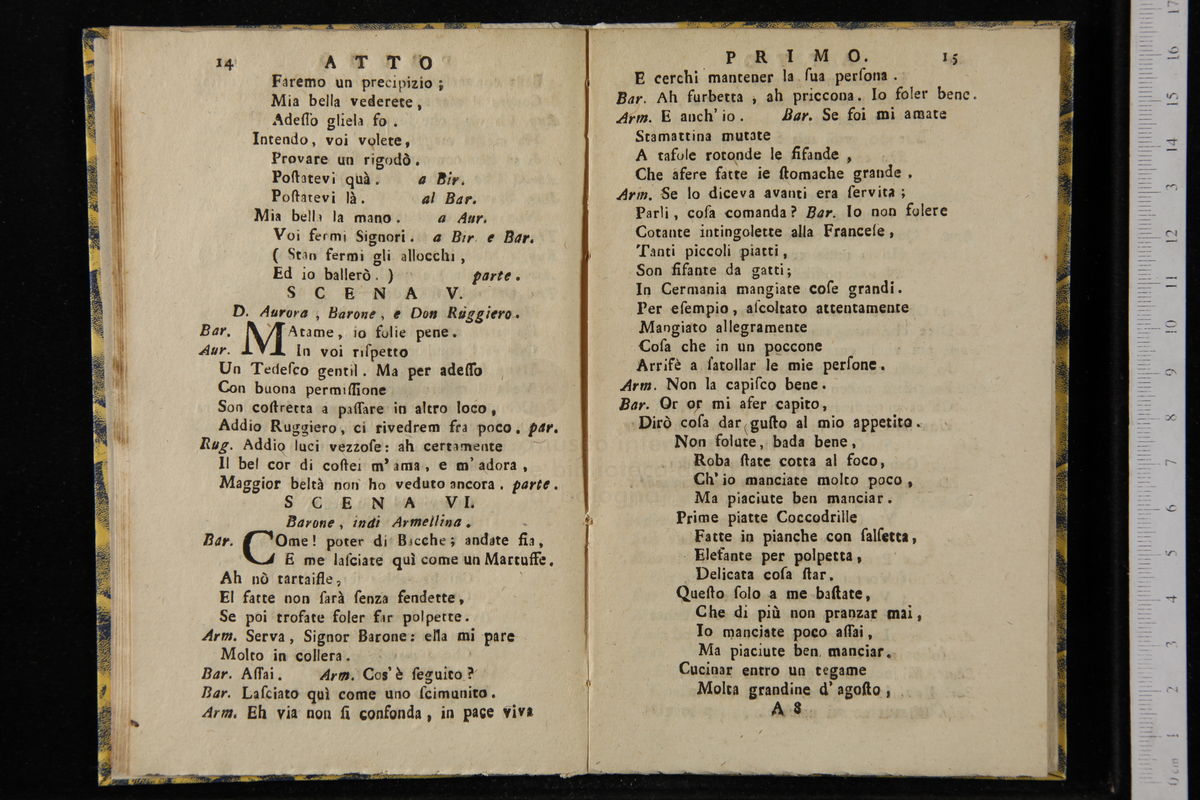 14 ATTO
Faremo un precipizio ;
Mia bella vederete ,
Adeſſo gliela fo .
Intendo, voi volete,
Provare un rigodò .
Poſtatevi quà . a Bir.
Poſtatevi là . al Bar.
Mia bella la mano . a Aur.
Voi fermi Signori . a Bir e Bar.
( Stan fermi gli allocchi ,
Ed io ballerò . ) parte .
SCENA V.
D. Aurora , Barone , e Don Ruggiero .
Bar. MAtame, io folie pene .
Aur. In voi riſpetto
Un Tedeſco gentil . Ma per adeſſo
Con buona permiſſione
Son coſtretta a paſſare in altro loco ,
Addio Ruggiero , ci rivedrem fra poco . par.
Rug. Addio luci vezzoſe : ah certamente
Il bel cor di coſtei m' ama , e m' adora ,
Maggior beltà non ho veduto ancora . parte .
SCENA VI.
Barone , indi Armellina .
Bar. COme ! poter di Bacche ; andate ſia,
E me laſciate quì come un Martuffe .
Ah nò tartaifle ,
El fatte non ſarà ſenza fendette ,
Se poi trofate foler far polpette .
Arm. Serva , Signor Barone : ella mi pare
Molto in collera .
Bar. Aſſai . Arm. Cos' è ſeguito ?
Bar. Laſciato quì come uno ſcimunito .
Arm. Eh via non ſi confonda , in pace viva
PRIMO. 15
E cerchi mantener la ſua perſona .
Bar. Ah furbetta , ah priccona . Io foler bene .
Arm. E anch' io . Bar. Se foi mi amate
Stamattina mutate
A tafole rotonde le fifande ,
Che afere fatte ie ſtomache grande .
Arm. Se lo diceva avanti era ſervita ;
Parli , coſa comanda ? Bar. Io non folere
Cotante intingolette alla Franceſe ,
Tanti piccoli piatti ,
Son fifante da gatti ;
In Cermania mangiate coſe grandi .
Per eſempio , aſcoltato attentamente
Mangiato allegramente
Coſa che in un poccone
Arrifè a ſatollar le mie perſone .
Arm. Non la capiſco bene .
Bar. Or or mi afer capito ,
Dirò coſa dar guſto al mio appetito .
Non folute , bada bene ,
Roba ſtate cotta al foco ,
Ch' io manciate molto poco ,
Ma piaciute ben manciar .
Prime piatte Coccodrille
Fatte in pianche con ſalſetta ,
Elefante per polpetta ,
Delicata coſa ſtar .
Queſto ſolo a me baſtate ,
Che di più non pranzar mai ,
Io manciate poco aſſai ,
Ma piaciute ben manciar .
Cucinar entro un tegame
Molta grandine d' agoſto ,
A 8